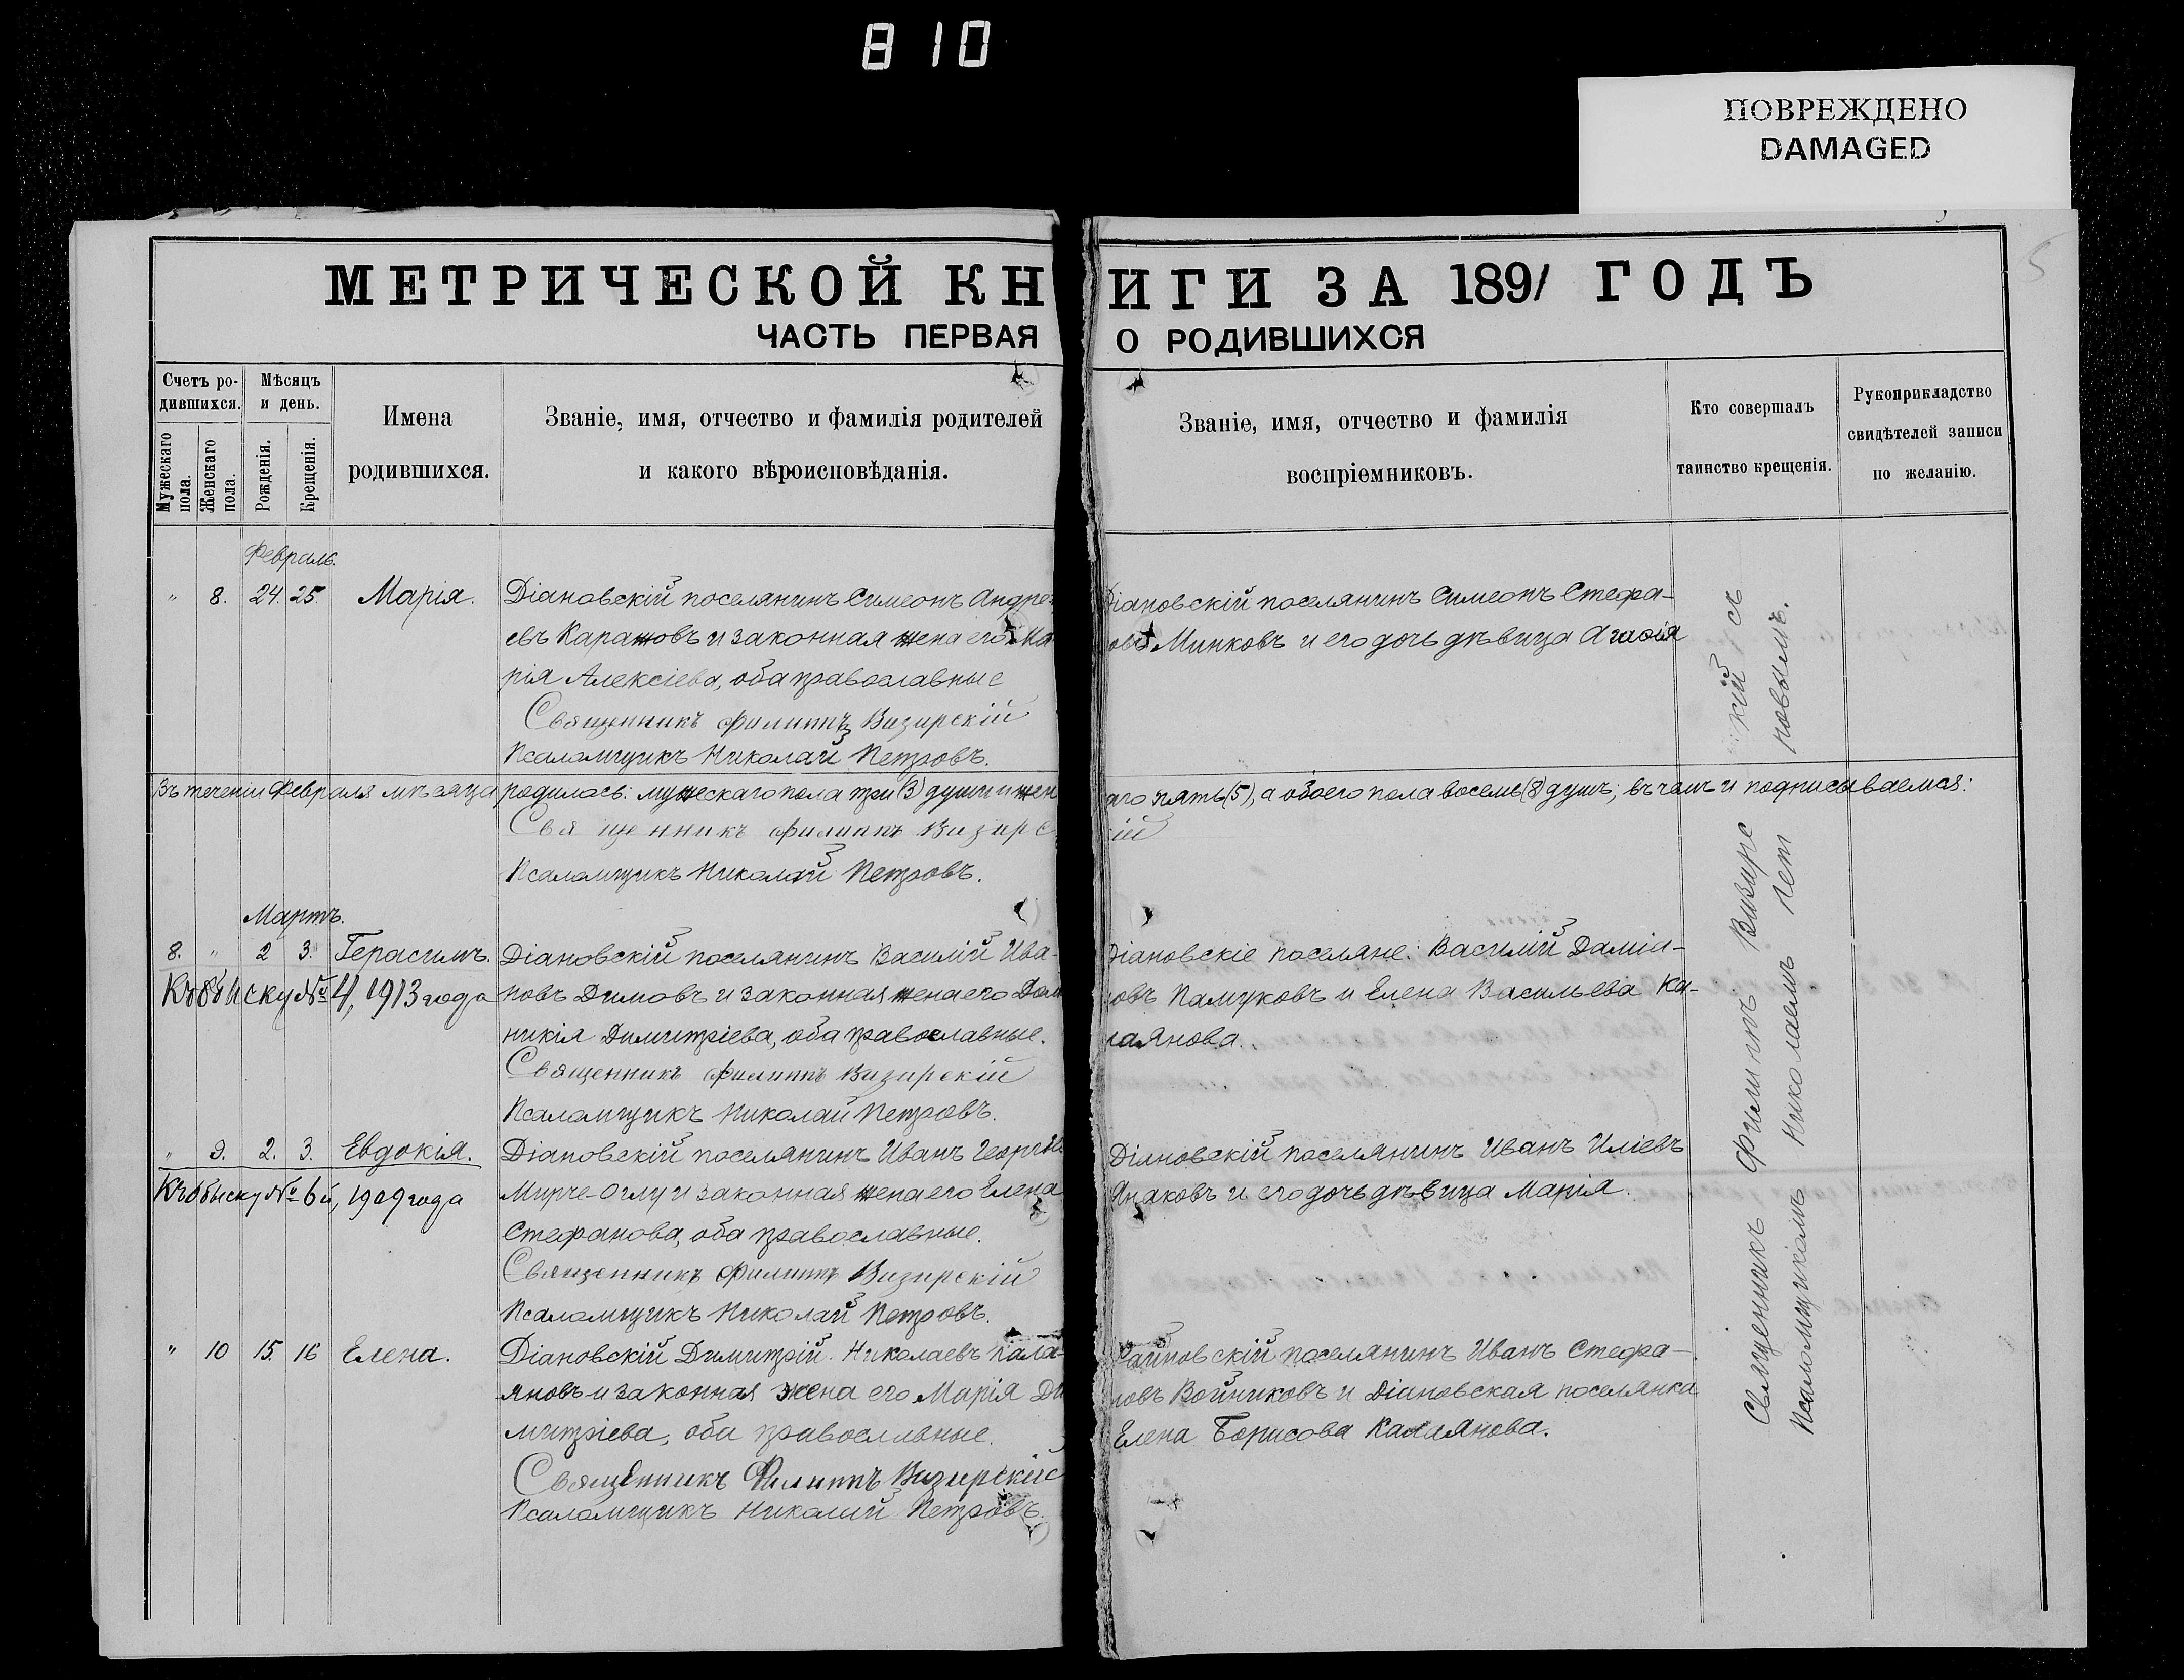 810
ПОВРЕЖДЕНО
DAMAGED
5
МЕТРИЧЕСКОЙ КНИГИ ЗА 1891 ГОДЪ
ЧАСТЬ ПЕРВАЯ О РОДИВШИХСЯ
Счетъ родившихся.
Мужескаго пола.
Женскаго пола.
Мѣсяцъ и день.
Рожденія.
Крещенія.
Имена
родившихся.
Званіе, имя, отчество и фамилія родителей
и какого вѣроисповѣданія.
Званіе, имя, отчество и фамилія
воспріемниковъ.
Кто совершалъ
таинство крещенія.
Рукоприкладство
свидѣтелей записи
по желанію.
Февраль.
" 8. 24. 25. Марія.
Діановскій поселянинъ Симеонъ Андре-
евъ Каражовъ и законная жена его Ма
рія Алексіева, оба православные
Священникъ Филиппъ Визирскій
Псаломщикъ Николай Петровъ.
Діановскій поселянинъ Симеонъ Стефа-
овъ Минковъ и его дочь дѣвица Агаѳія
Въ теченіи Февраля мѣсяца родилось: мужескаго пола три (3) души и жен
аго пять (5), а обоего пола восемь (8) душъ; въ чемъ и подписываемся:
Священникъ Филиппъ Визирскій
Псаломщикъ Николай Петровъ.
Мартъ.
8. " 2 3. Герасимъ.
Къ обыску № 4, 1913 года
Діановскій поселянинъ Василій Ива-
новъ Димовъ и законная жена его Дом
никія Димитріева, оба православные.
Священникъ Филиппъ Визирскій
Псаломщикъ Николай Петровъ.
Діановскіе поселяне: Василій Даміи-
овъ Памуковъ и Елена Васильева Ка-
лаянова.
" 9. 2. 3. Евдокія.
Къ обыску № 6й, 1909 года
Діановскій поселянинъ Иванъ Георгіе
Мирче-Оглу и законная жена его Елена
Стефанова, оба православные.
Священникъ Филиппъ Визирскій
Псаломщикъ Николай Петровъ.
Діановскій поселянинъ Иванъ Иліевъ
Янаковъ и его дочь дѣвица Марія.
" 10 15. 16 Елена.
Діановскій Димитрій Николаевъ Кала-
яновъ и законная жена его Марія Ди
митріева, оба православные.
Священникъ Филиппъ Визирскій
Псаломщикъ Николай Петровъ.
поселянинъ Иванъ Стефа-
новъ Войниковъ и Діановская поселянка
Елена Борисова Калаянова.
Священникъ Филиппъ Визирскій съ
Псаломщикомъ Николаемъ Петровымъ.